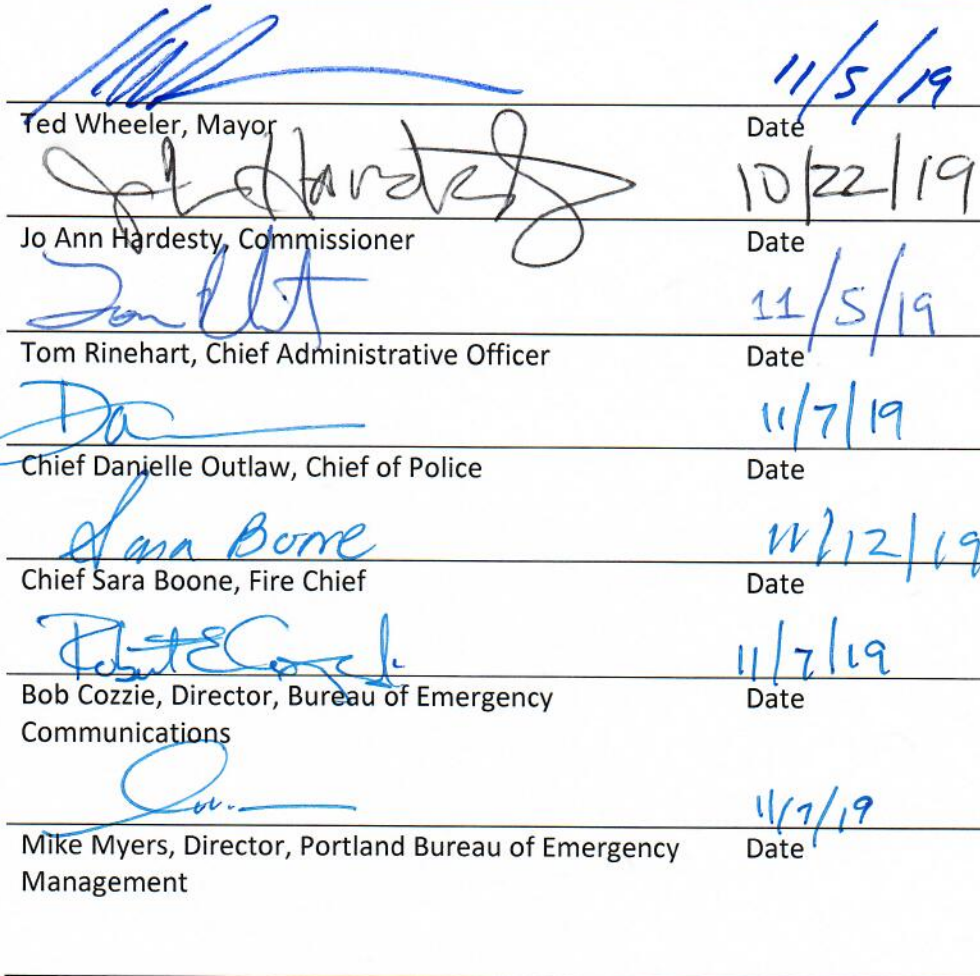 11/5/19
Ted Wheeler, Mayor Date
Jo Hardesty 10/22/19
Jo Ann Hardesty, Commissioner Date
Tom 11/5/19
Tom Rinehart, Chief Administrative Officer Date
Da 11/7/19
Chief Danielle Outlaw, Chief of Police Date
Sara Boone 11/12/19
Chief Sara Boone, Fire Chief Date
Robert E 11/7/19
Bob Cozzie, Director, Bureau of Emergency Date
Communications
11/7/19
Mike Myers, Director, Portland Bureau of Emergency Date
Management